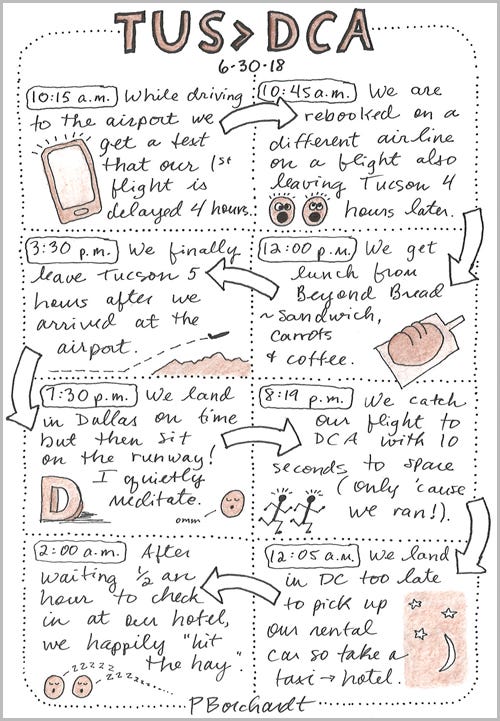 TUS > DCA
6-30-18
10:15 a.m. While driving
to the airport we
get a text
that our 1st
flight is
delayed 4 hours.
10:45 a.m. We are
rebooked on a
different airline
on a flight also
leaving Tucson 4
hours later.
12:00 p.m. We get
lunch from
Beyond Bread
~ Sandwich,
carrots
& coffee.
3:30 p.m. We finally
leave Tucson 5
hours after we
arrived at the
airport.
7:30 p.m. We land
in Dallas on time
but then sit
on the runway!
I quietly
meditate.
D
omm
8:19 p.m. We catch
our flight to
DCA with 10
seconds to spare
(only 'cause
we ran!).
12:05 a.m. We land
in DC too late
to pick up
our rental
car so take a
taxi → hotel.
2:00 a.m. After
waiting 1/2 an
hour to check
in at our hotel,
we happily "hit
the hay".
zzzzzzz
PBorchardt